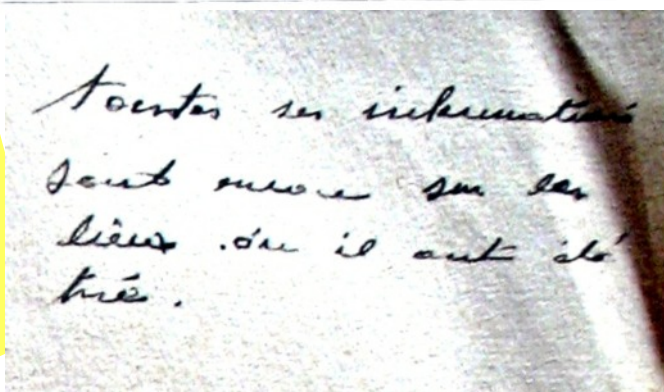 toutes ses informations
sont encore sur les
lieux où il ont été
tué.